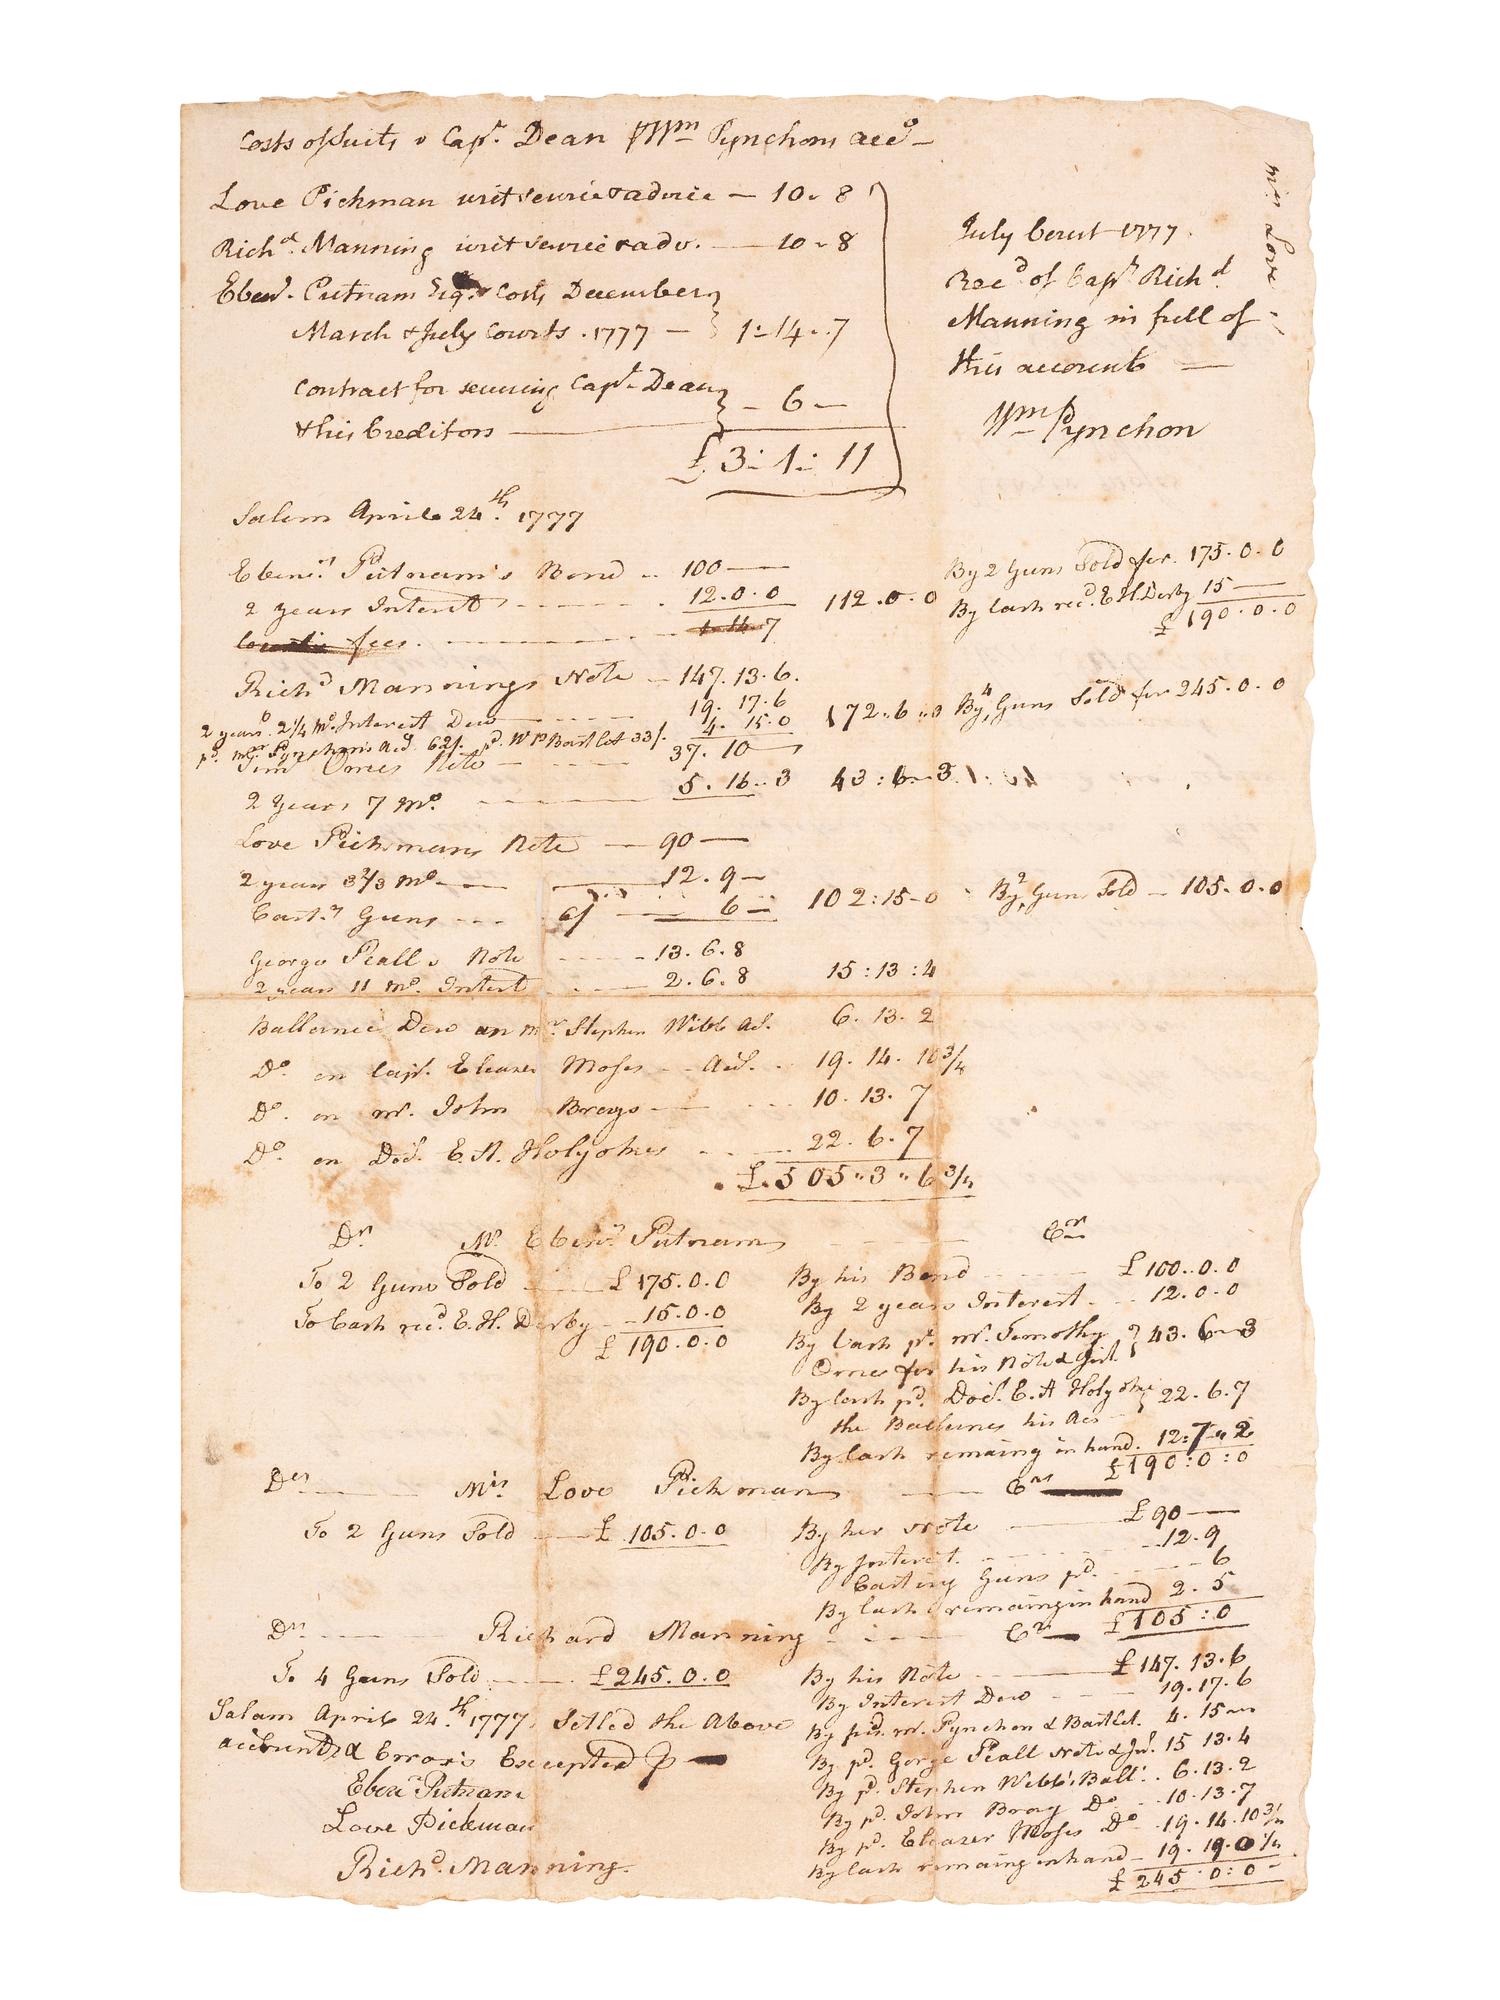 Costs of Suits v Capt. Dean & Wm Pynchons acco
Love Pickman writ service & advice — 10. 8
Richd. Manning writ service & adv. — 10 - 8
Eben. Putnam Esq. Costs December
March & July Courts . 1777 — 1:14..7
Contract for securing Capt. Dean
& his Creditors — - 6 —
£ 3: 1: 11
July Court 1777.
Recd of Capt Richd
Manning in full of
this account —
Wm Pynchon
Mrs Love
Salem April 24th. 1777
Ebenr. Putnam's Bond .. 100 —
2 years Interest 12.0.0 112.0.0
fees. 1 14 7
By 2 Guns Sold for. 175.0.0
By Cash recd. E H. Derby 15 —
£ 190.0.0
Richd Mannings Note — 147.13.6.
2 years. 2 1/4 Mo. Interest Due 19. 17.6 172..6..0
pd. Mr Pynchons acd. 62/. pd. Wm Bartlet 33/. 4. 15.0
By 4 Guns Sold for 245.0.0
Timo Ornes Note — 37. 10 —
2 Years 7 Mo. 5. 16..3 43:6-3
Love Pickmans Note — 90 —
2 years 3 2/3 Mo — 12. 9 —
Cart.g Guns 6/ — 6 — 102:15-0
By 2 Guns Sold — 105.0.0
George Peall's Note 13.6.8
2 years 11 Mo. Interest 2.6.8 15:13:4
Ballance Due on Mr. Stephen Webb Ad. 6. 13. 2
Do. on Capt. Eleazer Moses Acd. 19. 14. 10 3/4
Do. on Mr. John Brays 10. 13. 7
Do. on Doct. E. A. Holyokes 22. 6. 7
£. 505..3..6 3/4
Dr. Mr. Ebenr. Putnam Cr
To 2 Guns Sold £ 175.0.0
To Cash recd. E. H. Derby 15.0.0
£ 190.0.0
By his Bond £ 100..0.0
By 2 years Interest 12.0.0
By Cash pd. Mr. Timothy
Ornes for his Note & Int. 43. 6 - 3
By Cash pd. Doct. E. A Holyoke
the Ballance his Acc 22. 6. 7
By Cash remaing in hand. 12:7..2
£ 190:0:0
Dr — Mrs. Love Pickman — Cr
To 2 Guns Sold £ 105.0.0
By her Note £ 90 —
By Interest. 12.9
Carting Guns pd. 6
By Cash remaing in hand 2. 5
£ 105:0
Dr. — Richard Manning — Cr
To 4 Guns Sold £245.0.0
By his Note £ 147. 13.6
By Interest Due 19. 17. 6
By pd. Mr. Pynchon & Bartlet. 4. 15 —
By pd. Gorge Peall Note & Int. 15 13.4
By pd. Stephen Webb's Ball. 6.13.2
By pd. John Bray Do 10.13.7
By pd. Eleazer Moses Do 19.14.10 3/4
By Cash remaing in hand — 19. 19.0 1/4
£ 245.0:0
Salam April 24th. 1777, Setled the Above
accounts & Errors Excepted
Eben Putnam
Love Pickman
Richd. Manning.